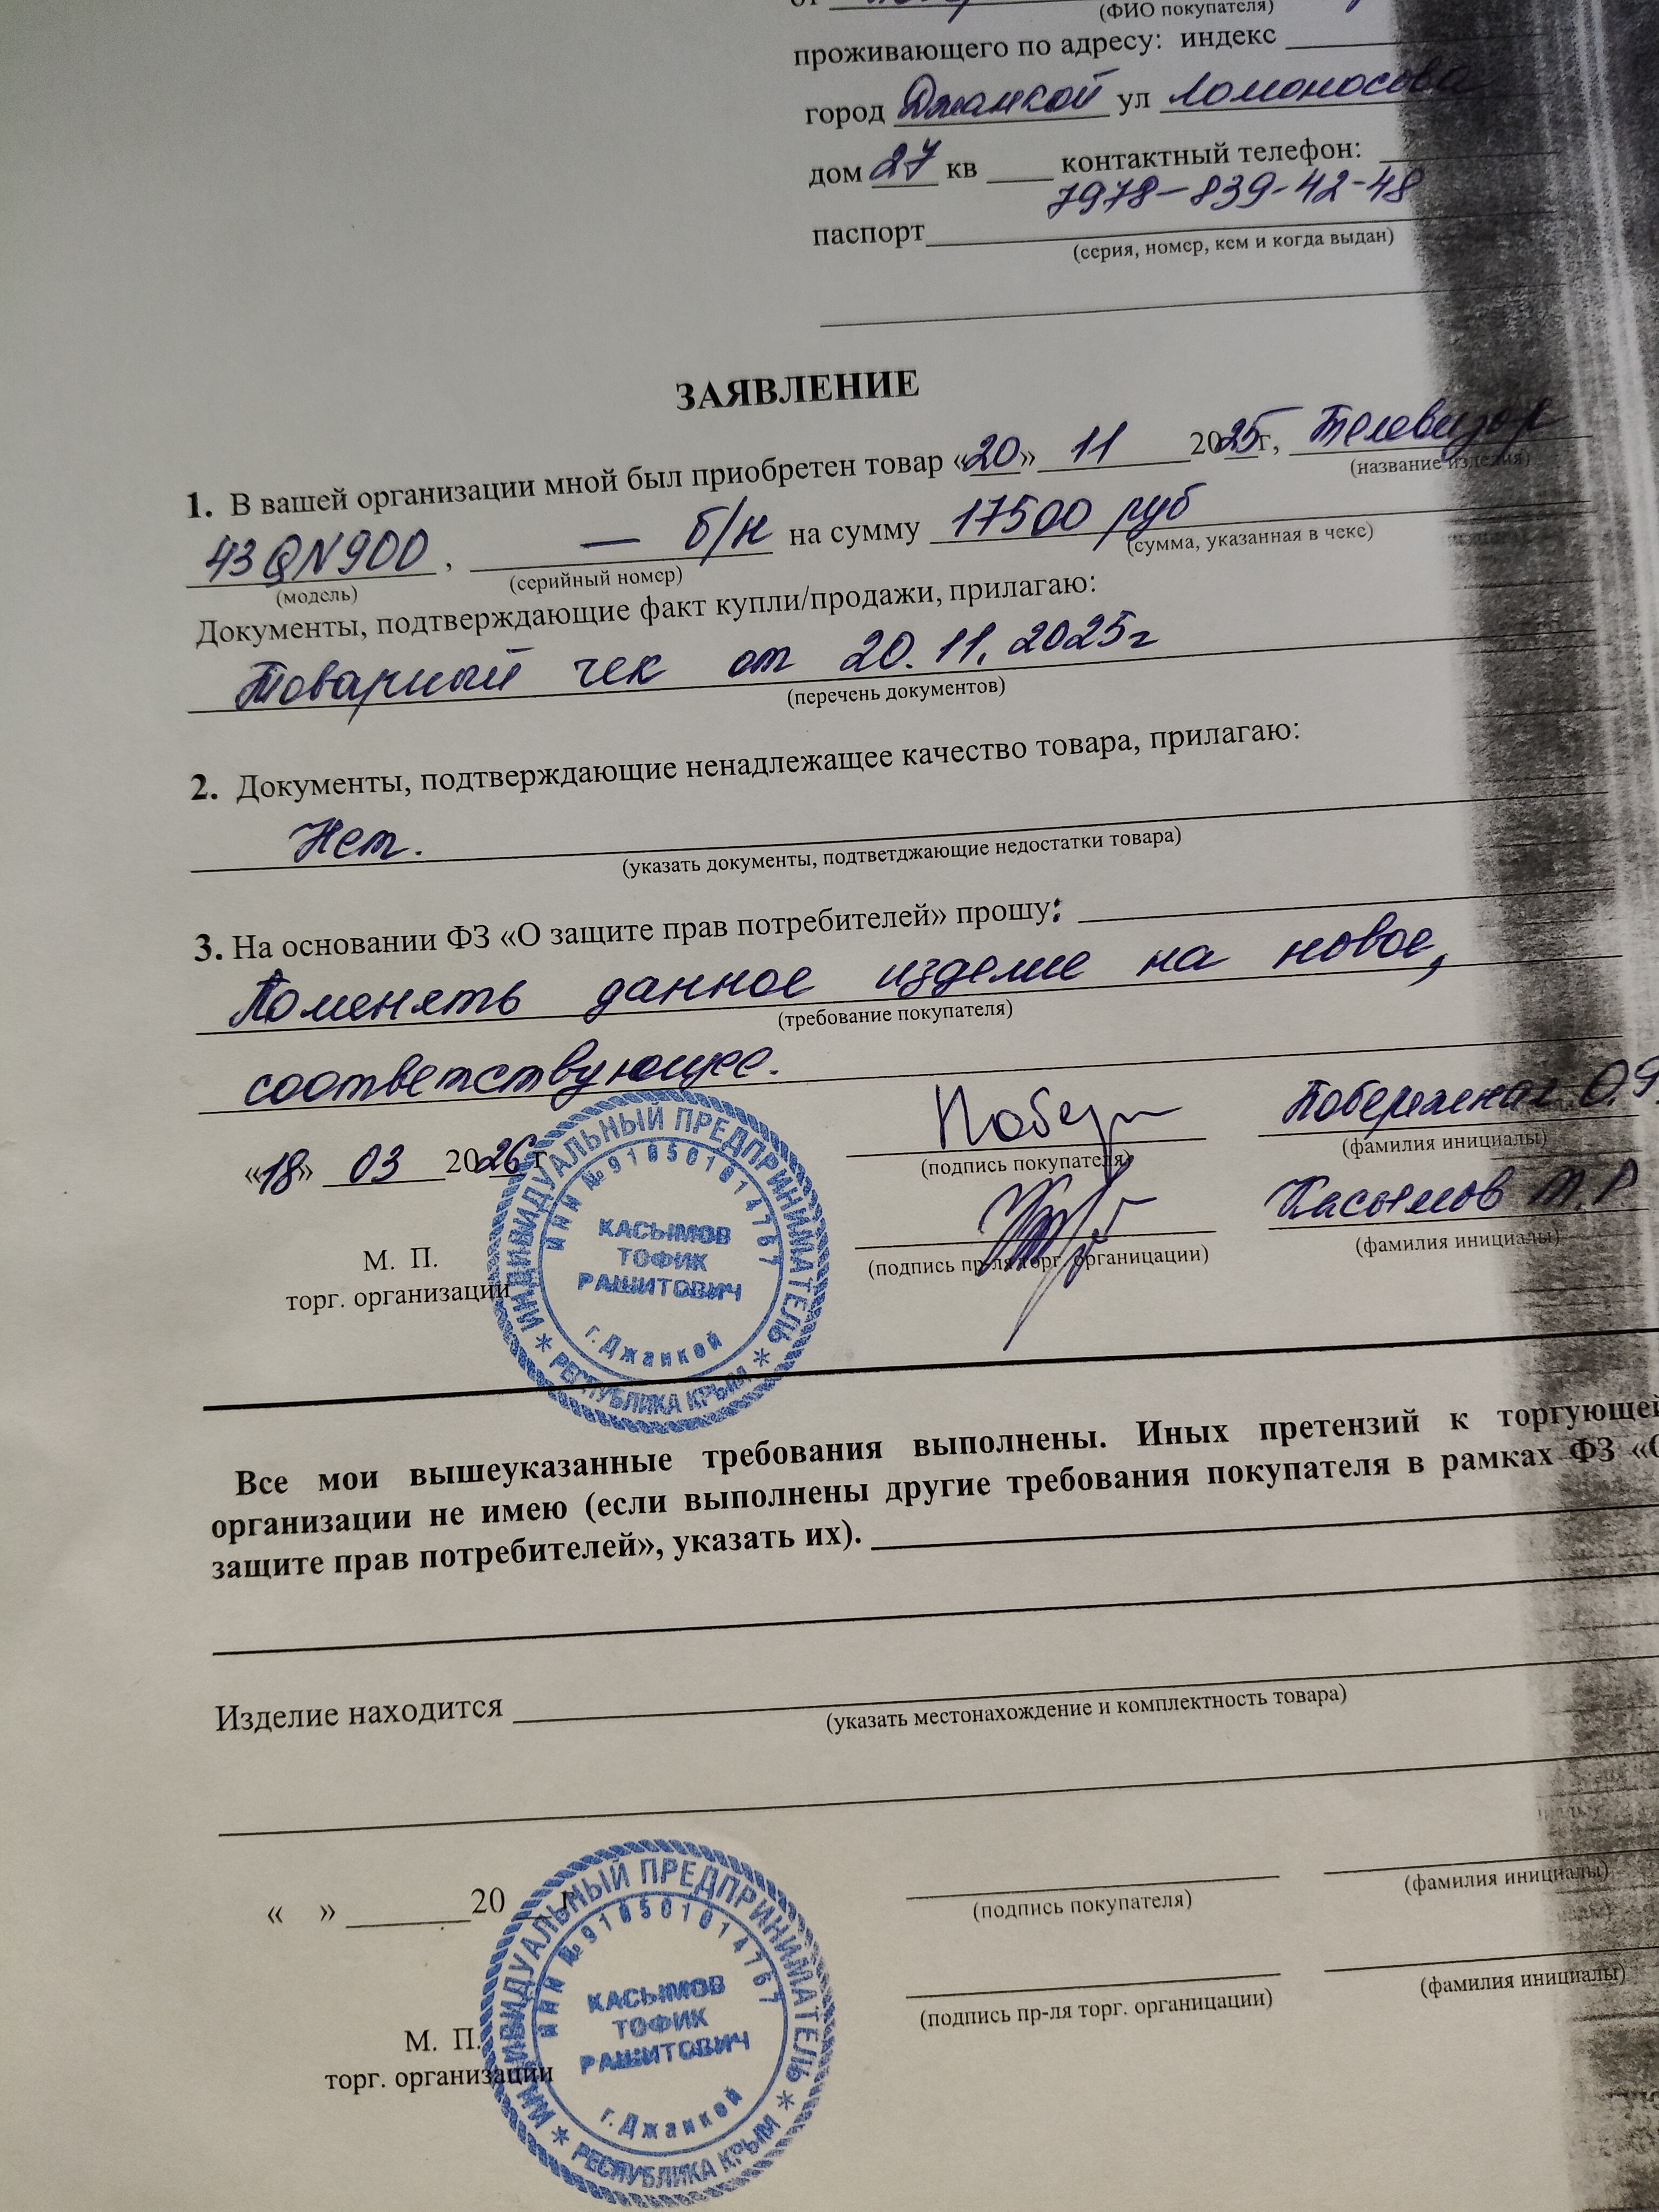 от
(ФИО покупателя)
проживающего по адресу: индекс
город Джанкой ул Ломоносова
дом 27 кв ____ контактный телефон:
7978-839-42-48
паспорт
(серия, номер, кем и когда выдан)
ЗАЯВЛЕНИЕ
1. В вашей организации мной был приобретен товар «20» 11 2025г, Телевизор
(название изделия)
43QN900, — б/н на сумму 17500 руб
(модель) (серийный номер) (сумма, указанная в чеке)
Документы, подтверждающие факт купли/продажи, прилагаю:
Товарный чек от 20.11.2025г
(перечень документов)
2. Документы, подтверждающие ненадлежащее качество товара, прилагаю:
Нет.
(указать документы, подтветджающие недостатки товара)
3. На основании ФЗ «О защите прав потребителей» прошу:
Поменять данное изделие на новое,
(требование покупателя)
соответствующее.
«18» 03 2026 г Побережная О.Я.
(подпись покупателя) (фамилия инициалы)
Касымов Т.Р
(подпись пр-ля торг. органицации) (фамилия инициалы)
М. П.
торг. организации
ИНДИВИДУАЛЬНЫЙ ПРЕДПРИНИМАТЕЛЬ
ИНН №910501014767
КАСЫМОВ
ТОФИК
РАШИТОВИЧ
г.Джанкой
* РЕСПУБЛИКА КРЫМ *
Все мои вышеуказанные требования выполнены. Иных претензий к торгующей
организации не имею (если выполнены другие требования покупателя в рамках ФЗ «О
защите прав потребителей», указать их).
Изделие находится
(указать местонахождение и комплектность товара)
« » 20 г
(подпись покупателя) (фамилия инициалы)
(подпись пр-ля торг. органицации) (фамилия инициалы)
М. П.
торг. организации
ИНДИВИДУАЛЬНЫЙ ПРЕДПРИНИМАТЕЛЬ
ИНН №910501014767
КАСЫМОВ
ТОФИК
РАШИТОВИЧ
г.Джанкой
* РЕСПУБЛИКА КРЫМ *